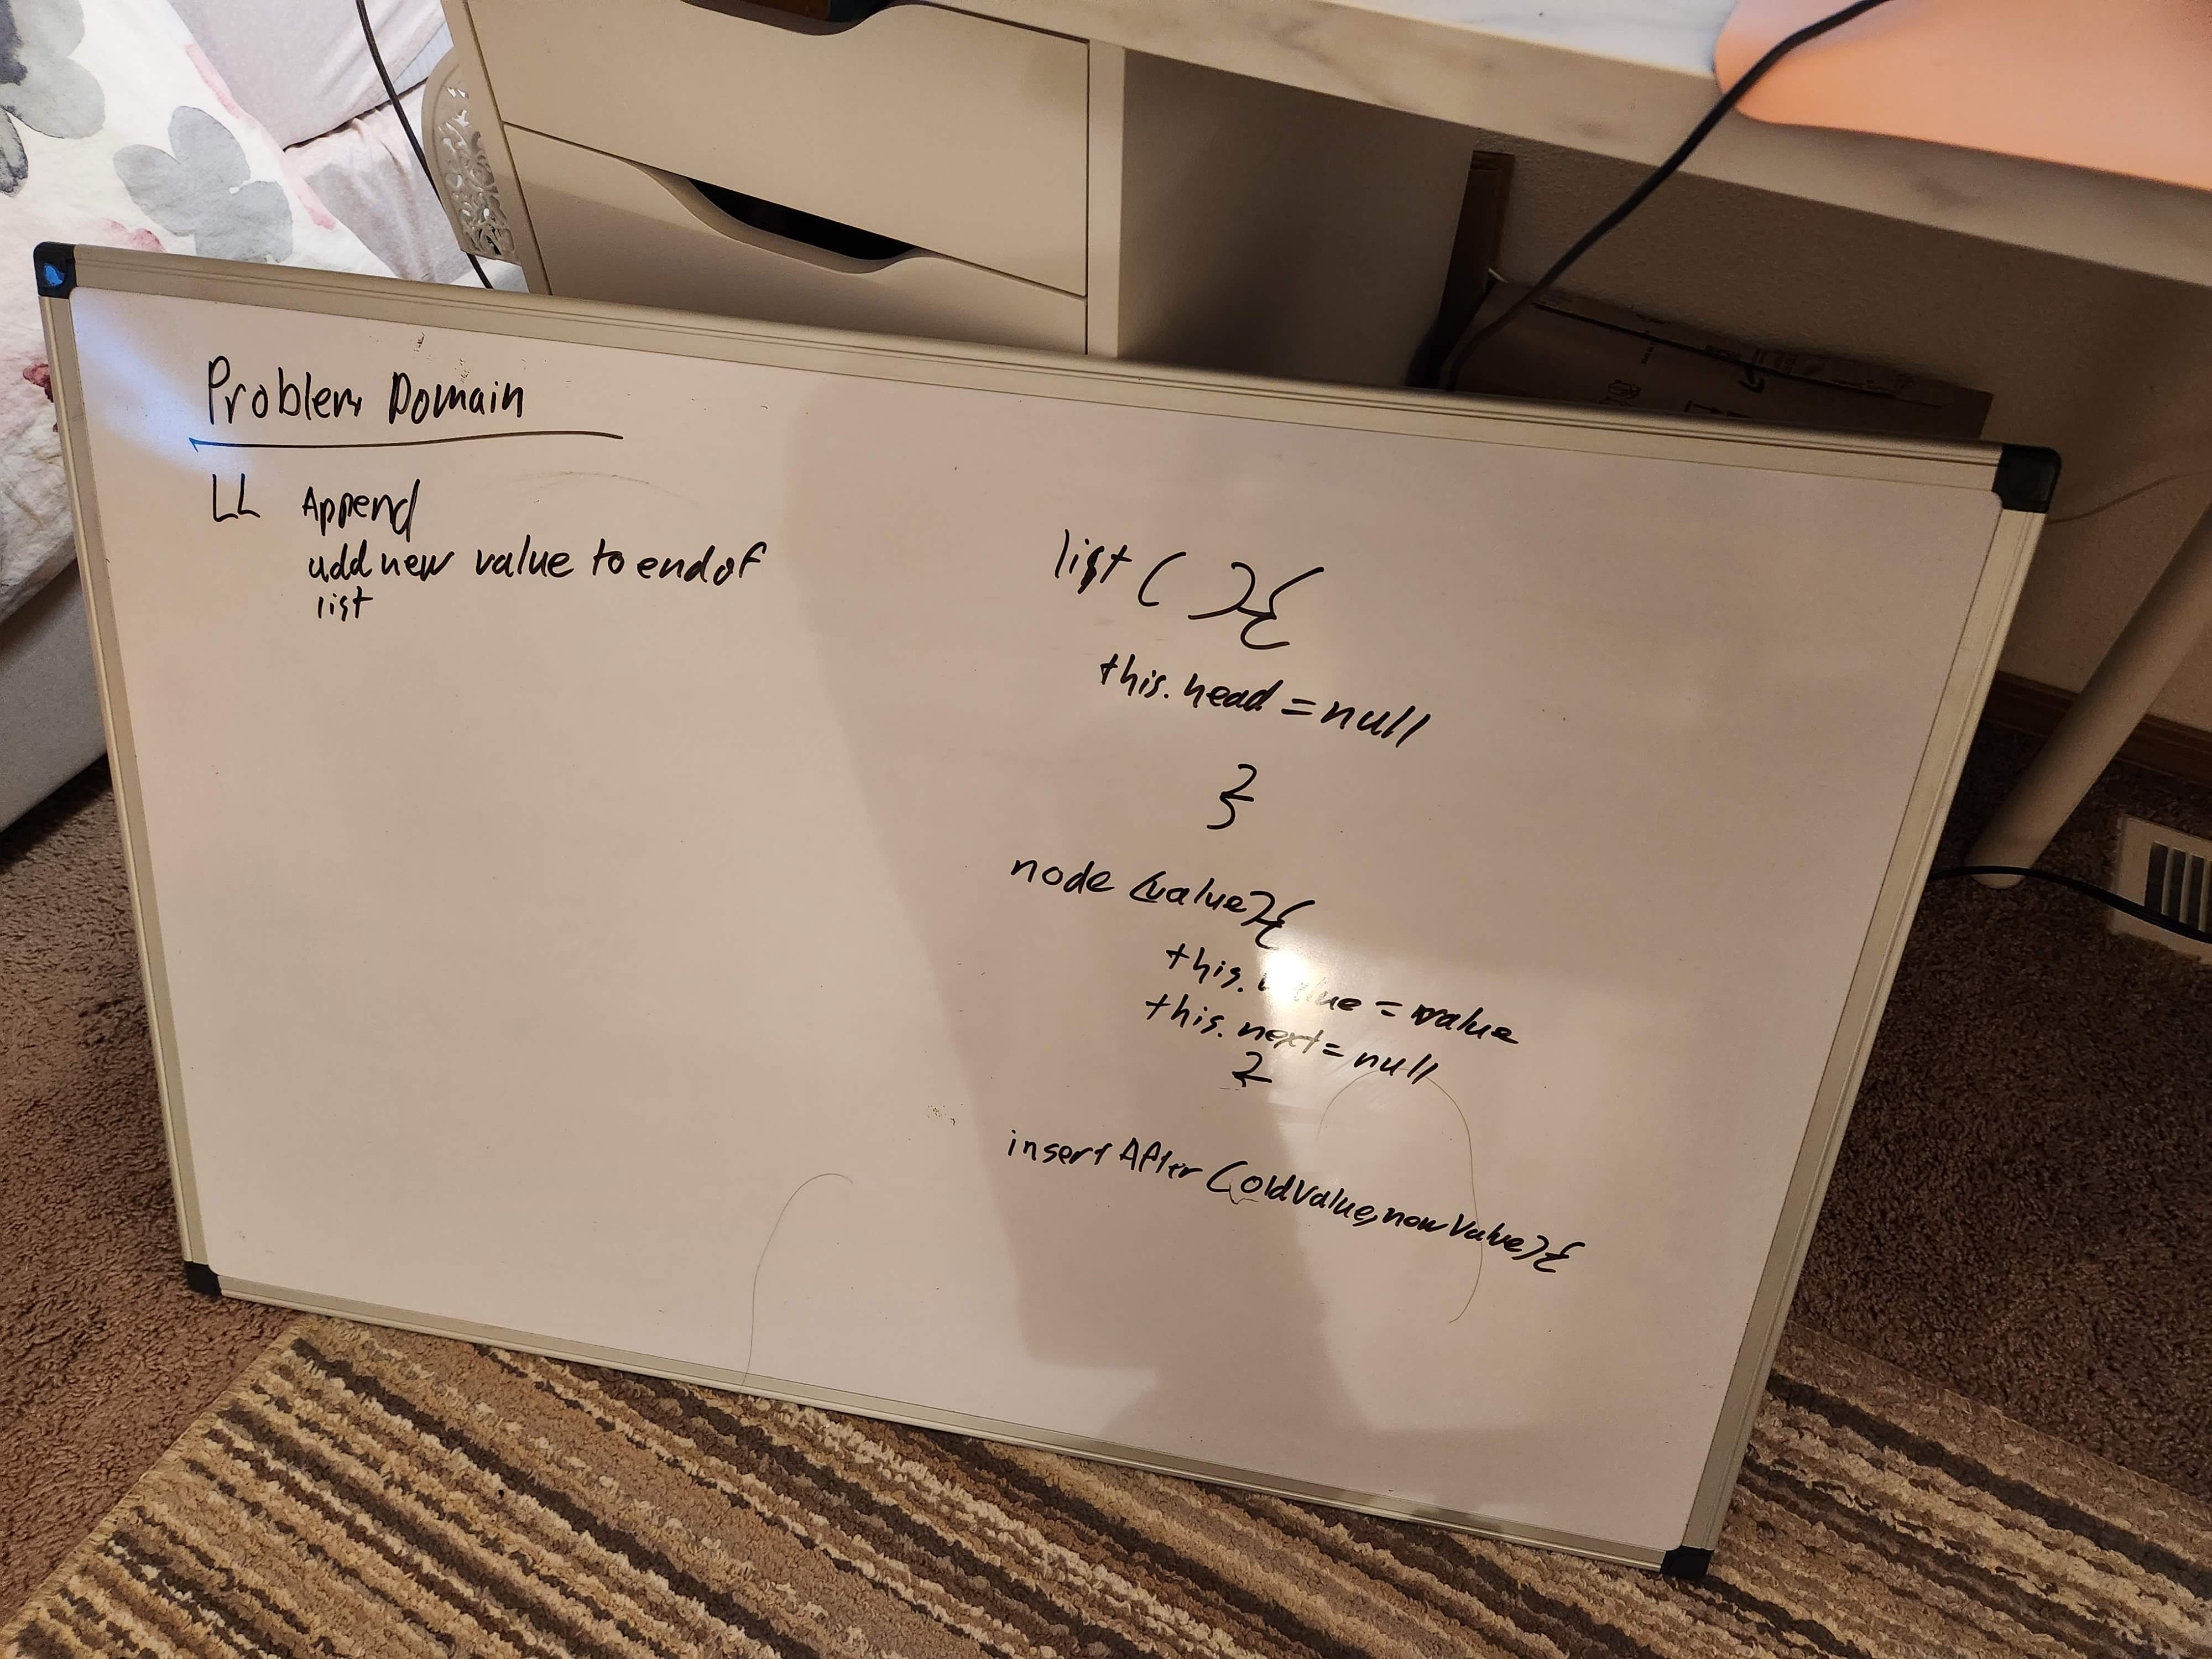 Problem Domain
LL Append
add new value to end of
list
list ( ){
this.head = null
}
node (value){
this.value = value
this.next = null
}
insert After (oldValue, new Value){